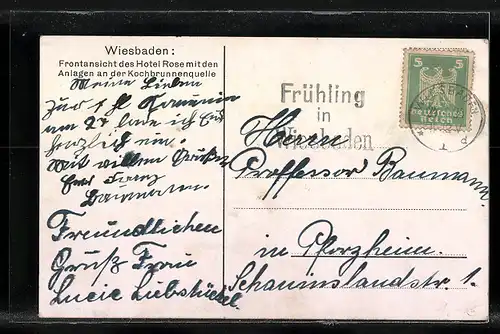 Wiesbaden:
Frontansicht des Hotel Rose mit den
Anlagen an der Kochbrunnenquelle
Meine Lieben
zur
am 27 lade ich Euch
herzlich ein.
Mit vielen Grüßen
Euer Franz
Baumann.
Freundlichen
Gruß Frau
Lucie Liebstückel.
Frühling
in
Wiesbaden
5 5
Deutsches
Reich
WIESBADEN
Herrn
Professor Baumann
in Pforzheim.
Schauinslandstr. 1.